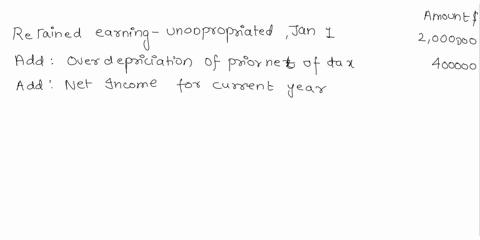 Amount $
Retained earning - unoopropriated, Jan 1 2,000000
Add: Over depriciation of prior net of tax 400000
Add: Net Income for current year